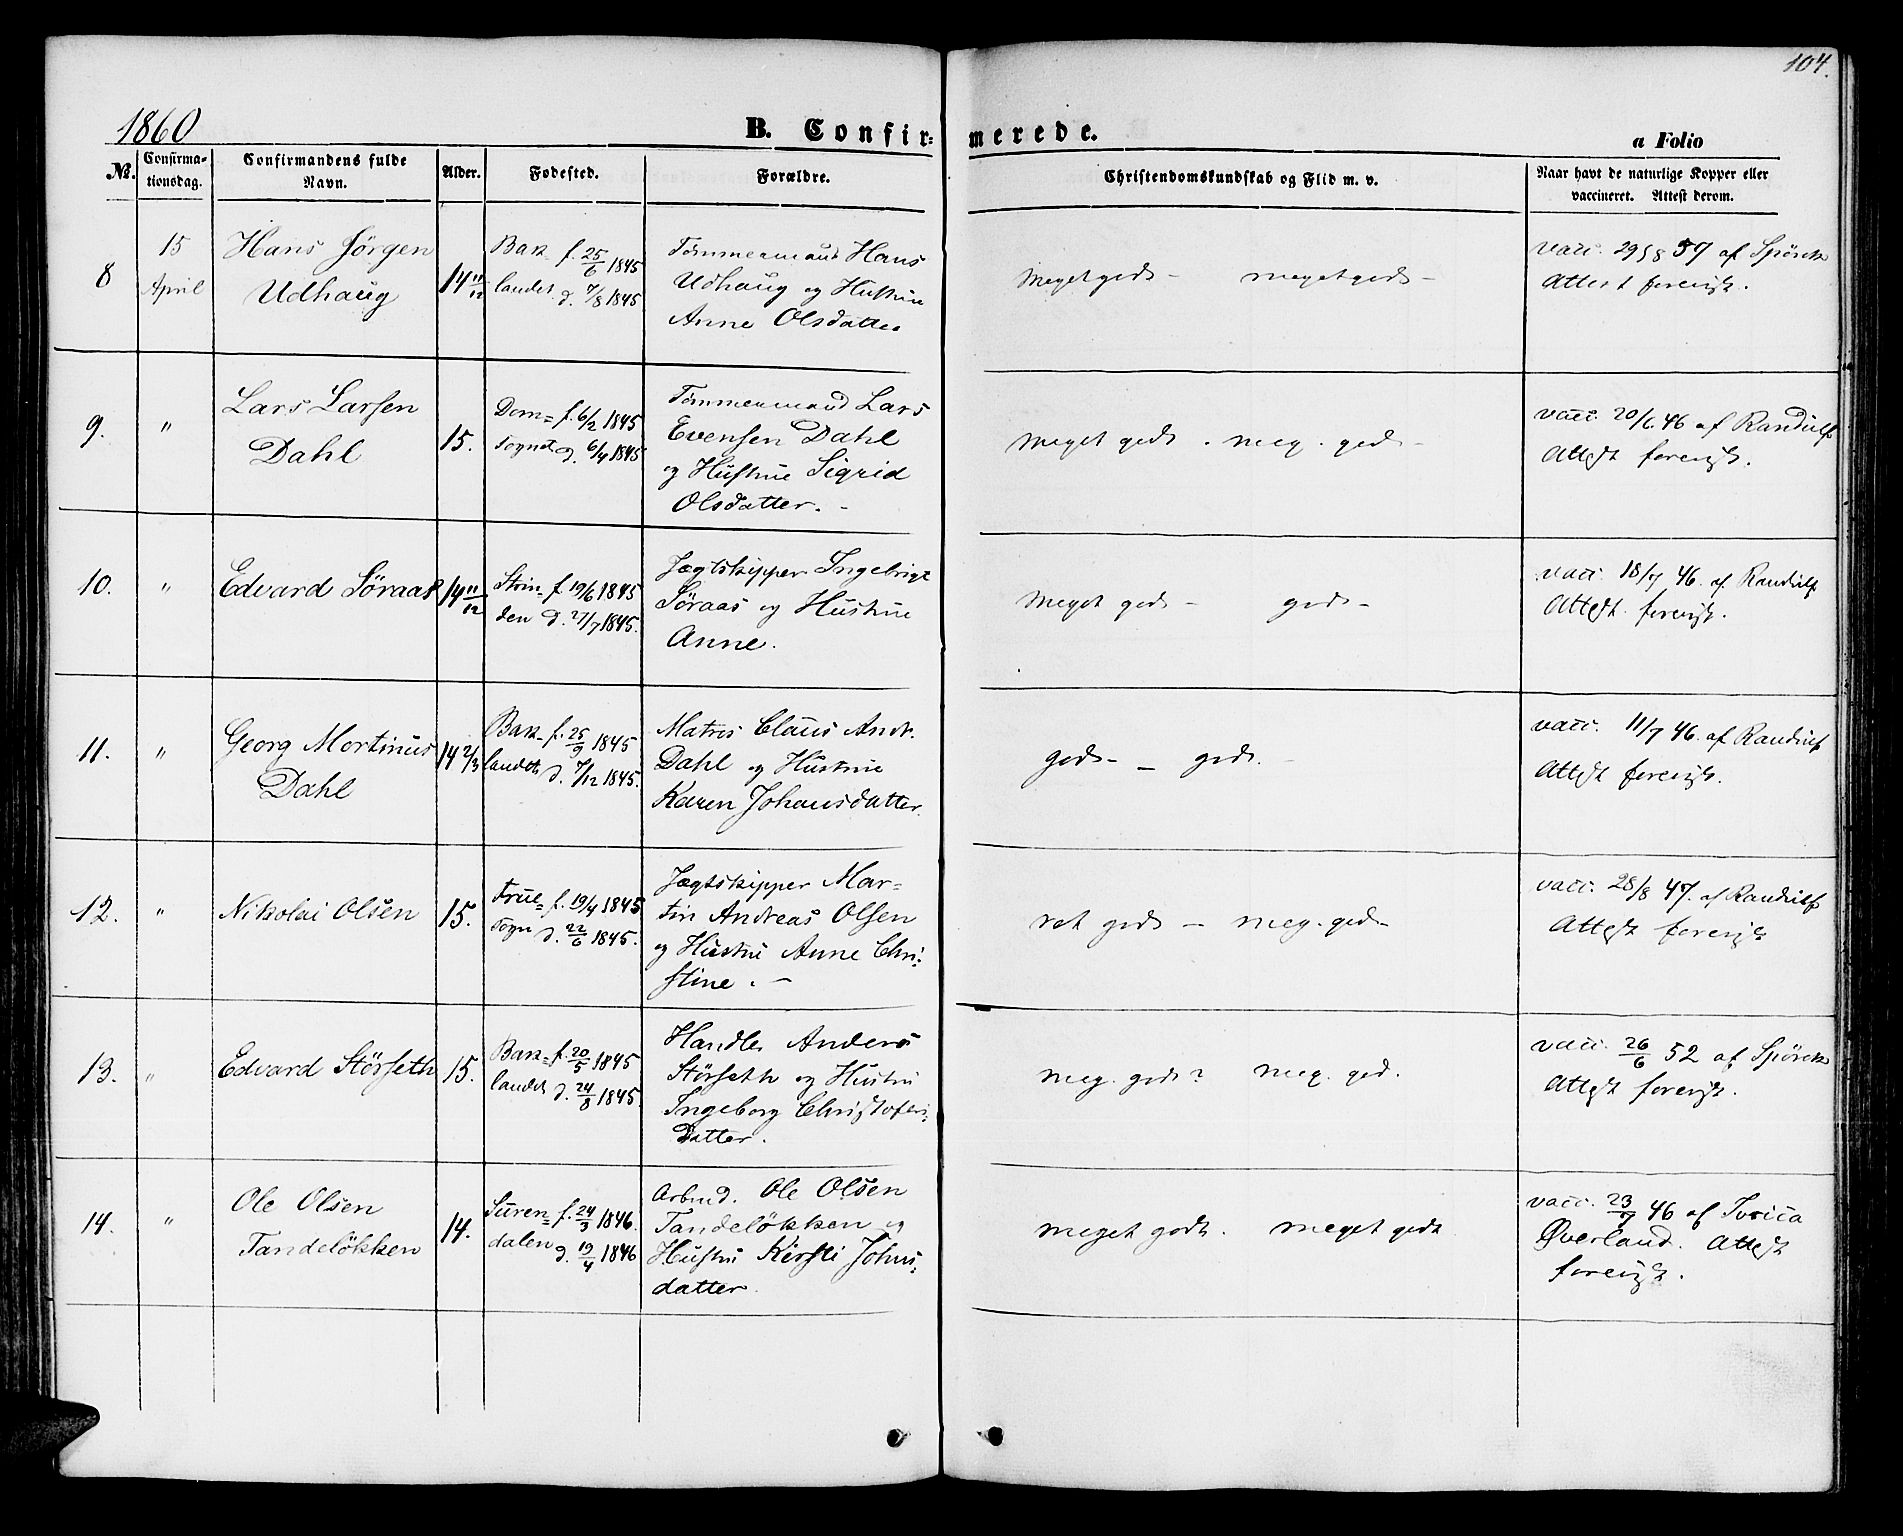 104.
1860
B. Confir= merede.
a Folio
No. Confirma-tionsdag. Confirmandens fulde Navn. Alder. Fødested. Forældre. Christendomskundskab og Flid m. v. Naar havt de naturlige Kopper eller vaccineret. Attest derom.
8 15 April
Hans Jörgen
Udhaug
14 11/12
Bak- f. 25/6 1845
landet d. 7/8 1845
Tømmermand Hans
Udhaug og Hustrue
Anne Olsdatter
Meget godt - meget godt -
vacc. 29/8 57 af Spörck
Attest foreviist.
9. "
Lars Larsen
Dahl
15.
Dom= f. 6/2 1845
Sognet d. 6/4 1845
Tømmermand Lars
Evensen Dahl
og Hustrue Sigrid
Olsdatter. -
meget godt - meg. godt -
vacc. 20/6 46 af Randulf
Attest foreviist.
10. "
Edvard Söraas
14 11/12
Strin= f. 19/6 1845
den d. 27/7 1845.
Jægtskipper Ingebrigt
Söraas og Hustrue
Anne.
Meget godt - godt -
vacc. 18/7 46. af Randulf
Attest foreviist.
11. "
Georg Martinus
Dahl
14 2/3
Bak- f. 25/9 1845
landet d. 7/12 1845.
Matros Claus Andr.
Dahl og Hustrue
Karen Johansdatter.
godt - - godt. -
vacc. 11/7 46. af Randulf
Attest foreviist.
12. "
Nikolai Olsen
15.
Frue= f. 19/4 1845
Sogn d. 22/6 1845.
Jægtskipper Mar=
tin Andreas Olsen
og Hustru Anne Chri=
stine. -
ret godt - meg. godt -
vacc. 28/8 47. af Randulf
Attest foreviist
13. "
Edvard Störseth
15.
Bak= f. 20/5 1845
landet d. 24/8 1845.
Handler Anders
Störseth og Hustru
Ingeborg Christofers=
datter.
meg. godt meg. god.
vacc. 26/6 52 af Spörck
Attest foreviist.
14. "
Ole Olsen
Tandelökken
14.
Suren= f. 24/3 1846.
dalen d. 19/4 1846
Arbmd. Ole Olsen
Tandelökken og
Hustru Kirsti Johns=
datter.
meget godt. meget godt
vacc. 23/7 46 af
Øverland. Attest
foreviist.